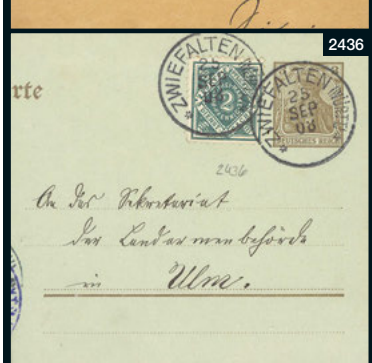 2436
ZWIEFALTEN (MÜNST.)
25
SEP
08
2
ZWIEFALTEN (MÜNST.)
25
SEP
08
DEUTSCHES REICH
rte
2436
An das Sekretariat
der Landarmenbehörde
in Ulm.